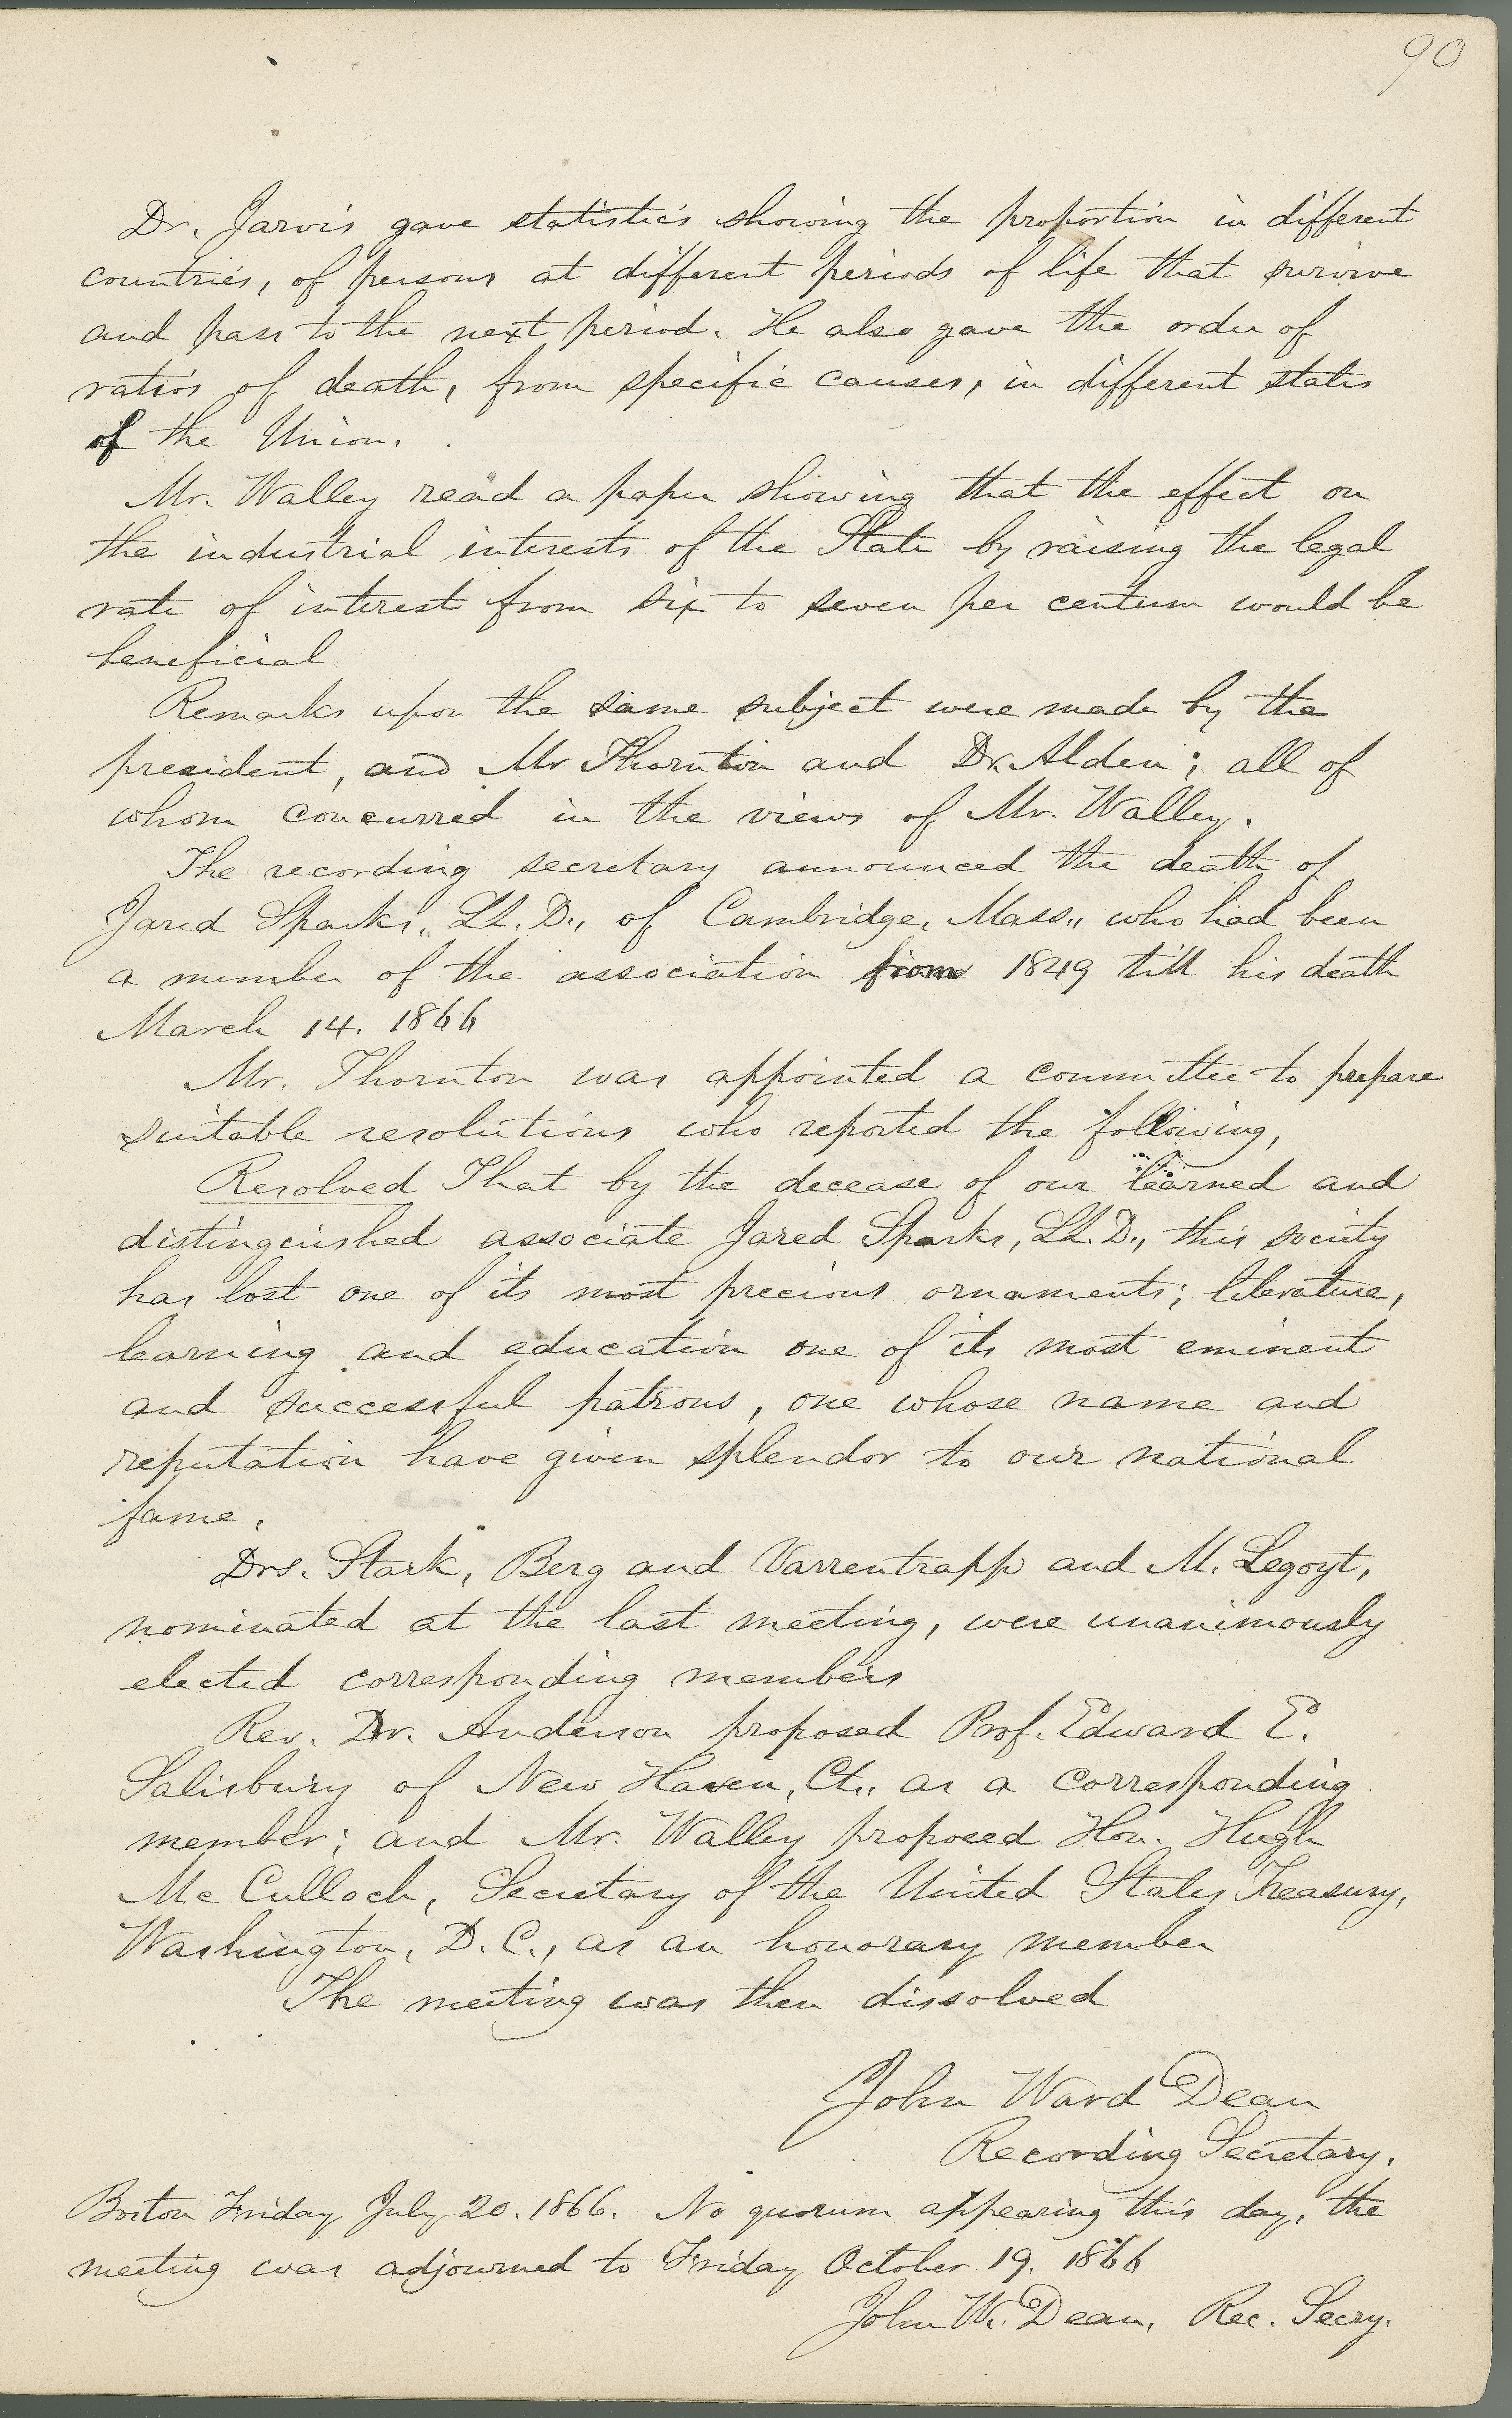 90
Dr. Jarvis gave statistics showing the proportion in different
countries, of persons at different periods of life that survive
and pass to the next period. He also gave the order of
ratios of death, from specific causes, in different states
of the Union.
Mr. Walley read a paper showing that the effect on
the industrial interests of the State by raising the legal
rate of interest from six to seven per centum would be
beneficial
Remarks upon the same subject were made by the
president, and Mr Thornton and Dr. Alden; all of
whom concurred in the views of Mr. Walley.
The recording secretary announced the death of
Jared Sparks, LL.D., of Cambridge, Mass., who had been
a member of the association from 1849 till his death
March 14. 1866
Mr. Thornton was appointed a committee to prepare
suitable resolutions who reported the following,
Resolved That by the decease of our learned and
distinguished associate Jared Sparks, LL.D., this society
has lost one of its most precious ornaments; literature,
learning and education one of its most eminent
and successful patrons, one whose name and
reputation have given splendor to our national
fame.
Drs. Stark, Berg and Varrentrapp and M. Legoyt,
nominated at the last meeting, were unanimously
elected corresponding members
Rev. Dr. Anderson proposed Prof. Edward E.
Salisbury of New Haven, Ct., as a corresponding
member; and Mr. Walley proposed Hon. Hugh
Mc Culloch, Secretary of the United States Treasury,
Washington, D.C., as an honorary member
The meeting was then dissolved
John Ward Dean
Recording Secretary.
Boston Friday July 20. 1866. No quorum appearing this day, the
meeting was adjourned to Friday October 19. 1866
John W. Dean, Rec. Secry.